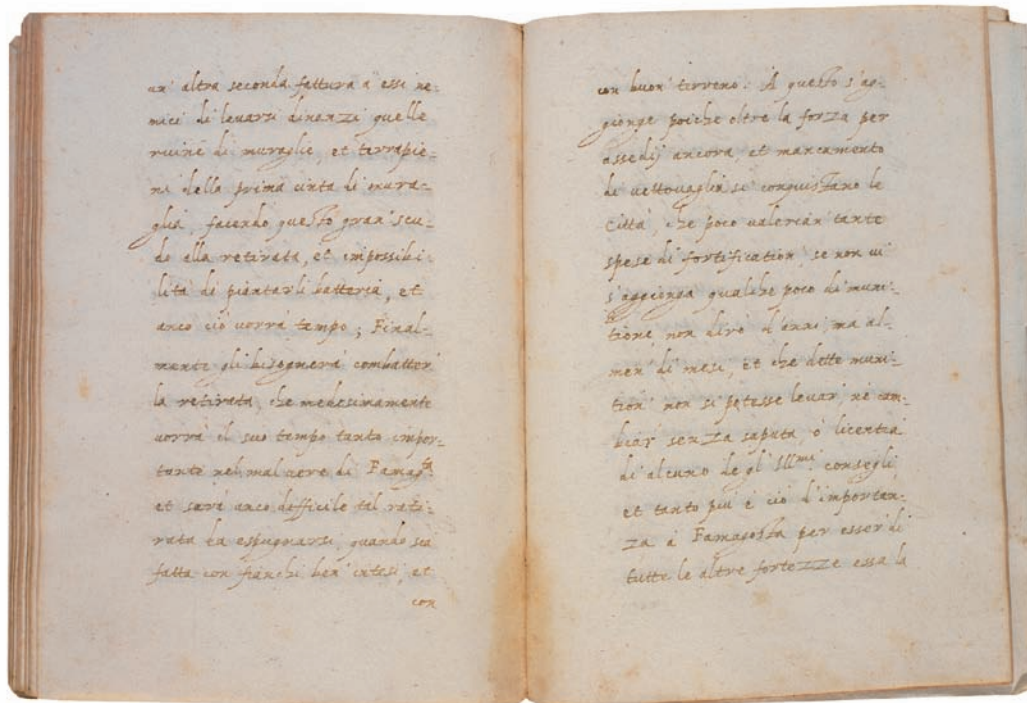 un' altra seconda fattura à essi ne:
mici di levarsi dinanzi quelle
ruine di muraglie, et terrapie:
ni della prima cinta di mura:
glia, facendo questo gran scu:
do alla retirata, et impossibi:
lità di piantarli batteria, et
anco ciò vorrà tempo; Final:
mente gli bisognerà combatter
la retirata, che medesimamente
vorrà il suo tempo tanto impor:
tante nel di Famag.ta
et sarà anco difficile tal reti:
rata da espugnarsi, quando sia
fatta con fianchi ben intesi, et
con
con buon terreno: A questo s'ag:
gionge poiche oltre la forza per
assedij ancora, et mancamento
de vettovaglia si conquistano le
Città, che poco valerian tante
spese di fortification, se non vi
s'aggionga qualche poco di muni:
tione non dirò d'anni, ma al:
men' di mesi, et che dette muni:
tion' non si potesse levar, nè cam:
biar senza saputa, ò licentia
di alcuno de gl' Ill.mi consegli,
et tanto più è ciò d'importan:
za à Famagosta per esser di
tutte le altre fortezze essa la